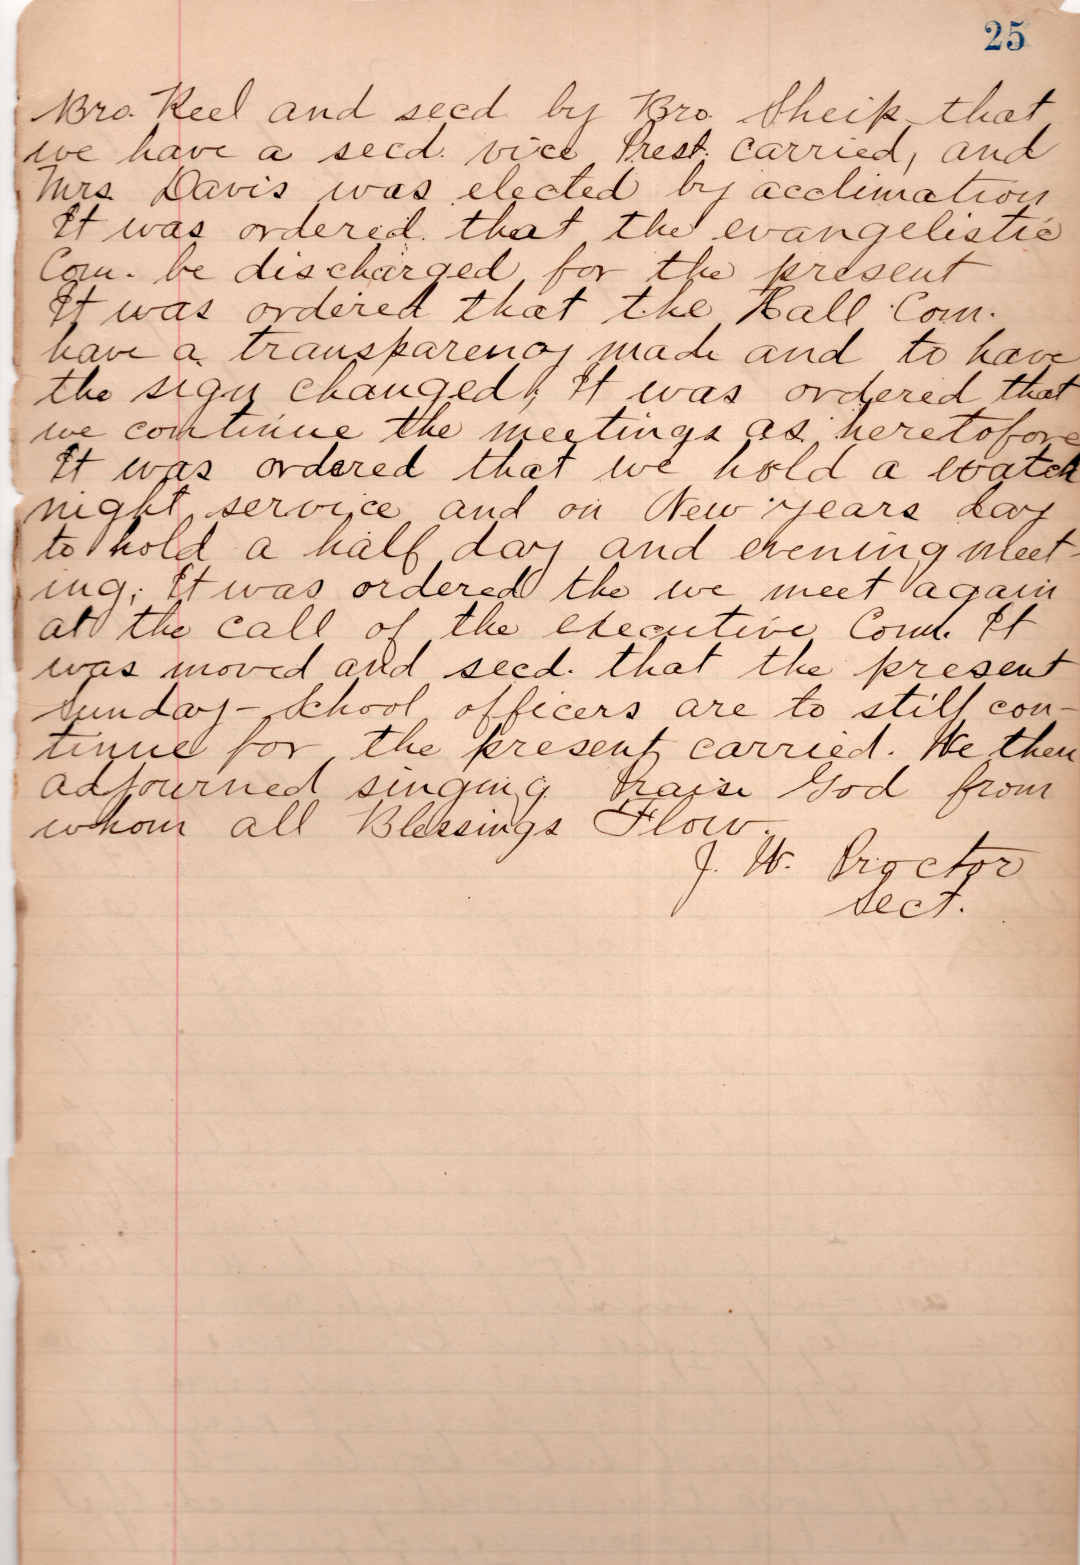 25
Bro. Keel and secd by Bro. Sheik that
we have a secd. vice Prest. carried, and
Mrs Davis was elected by acclimation
It was ordered that the evangelistic
Com. be discharged for the present
It was ordered that the Hall Com.
have a transparency made and to have
the sign changed; It was ordered that
we continue the meetings as heretofore
It was ordered that we hold a watch
night service and on New years day
to hold a half day and evening meet-
ing; It was ordered the we meet again
at the call of the executive Com. It
was moved and secd. that the present
Sunday-School officers are to still con-
tinue for the present carried. We then
adjourned singing Praise God from
whom all Blessings Flow.
J. W. Proctor
Sect.